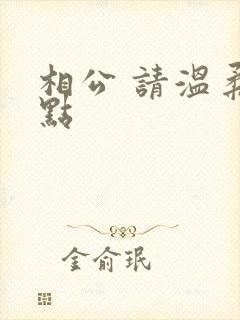 相公 請溫柔
點
金俞珉